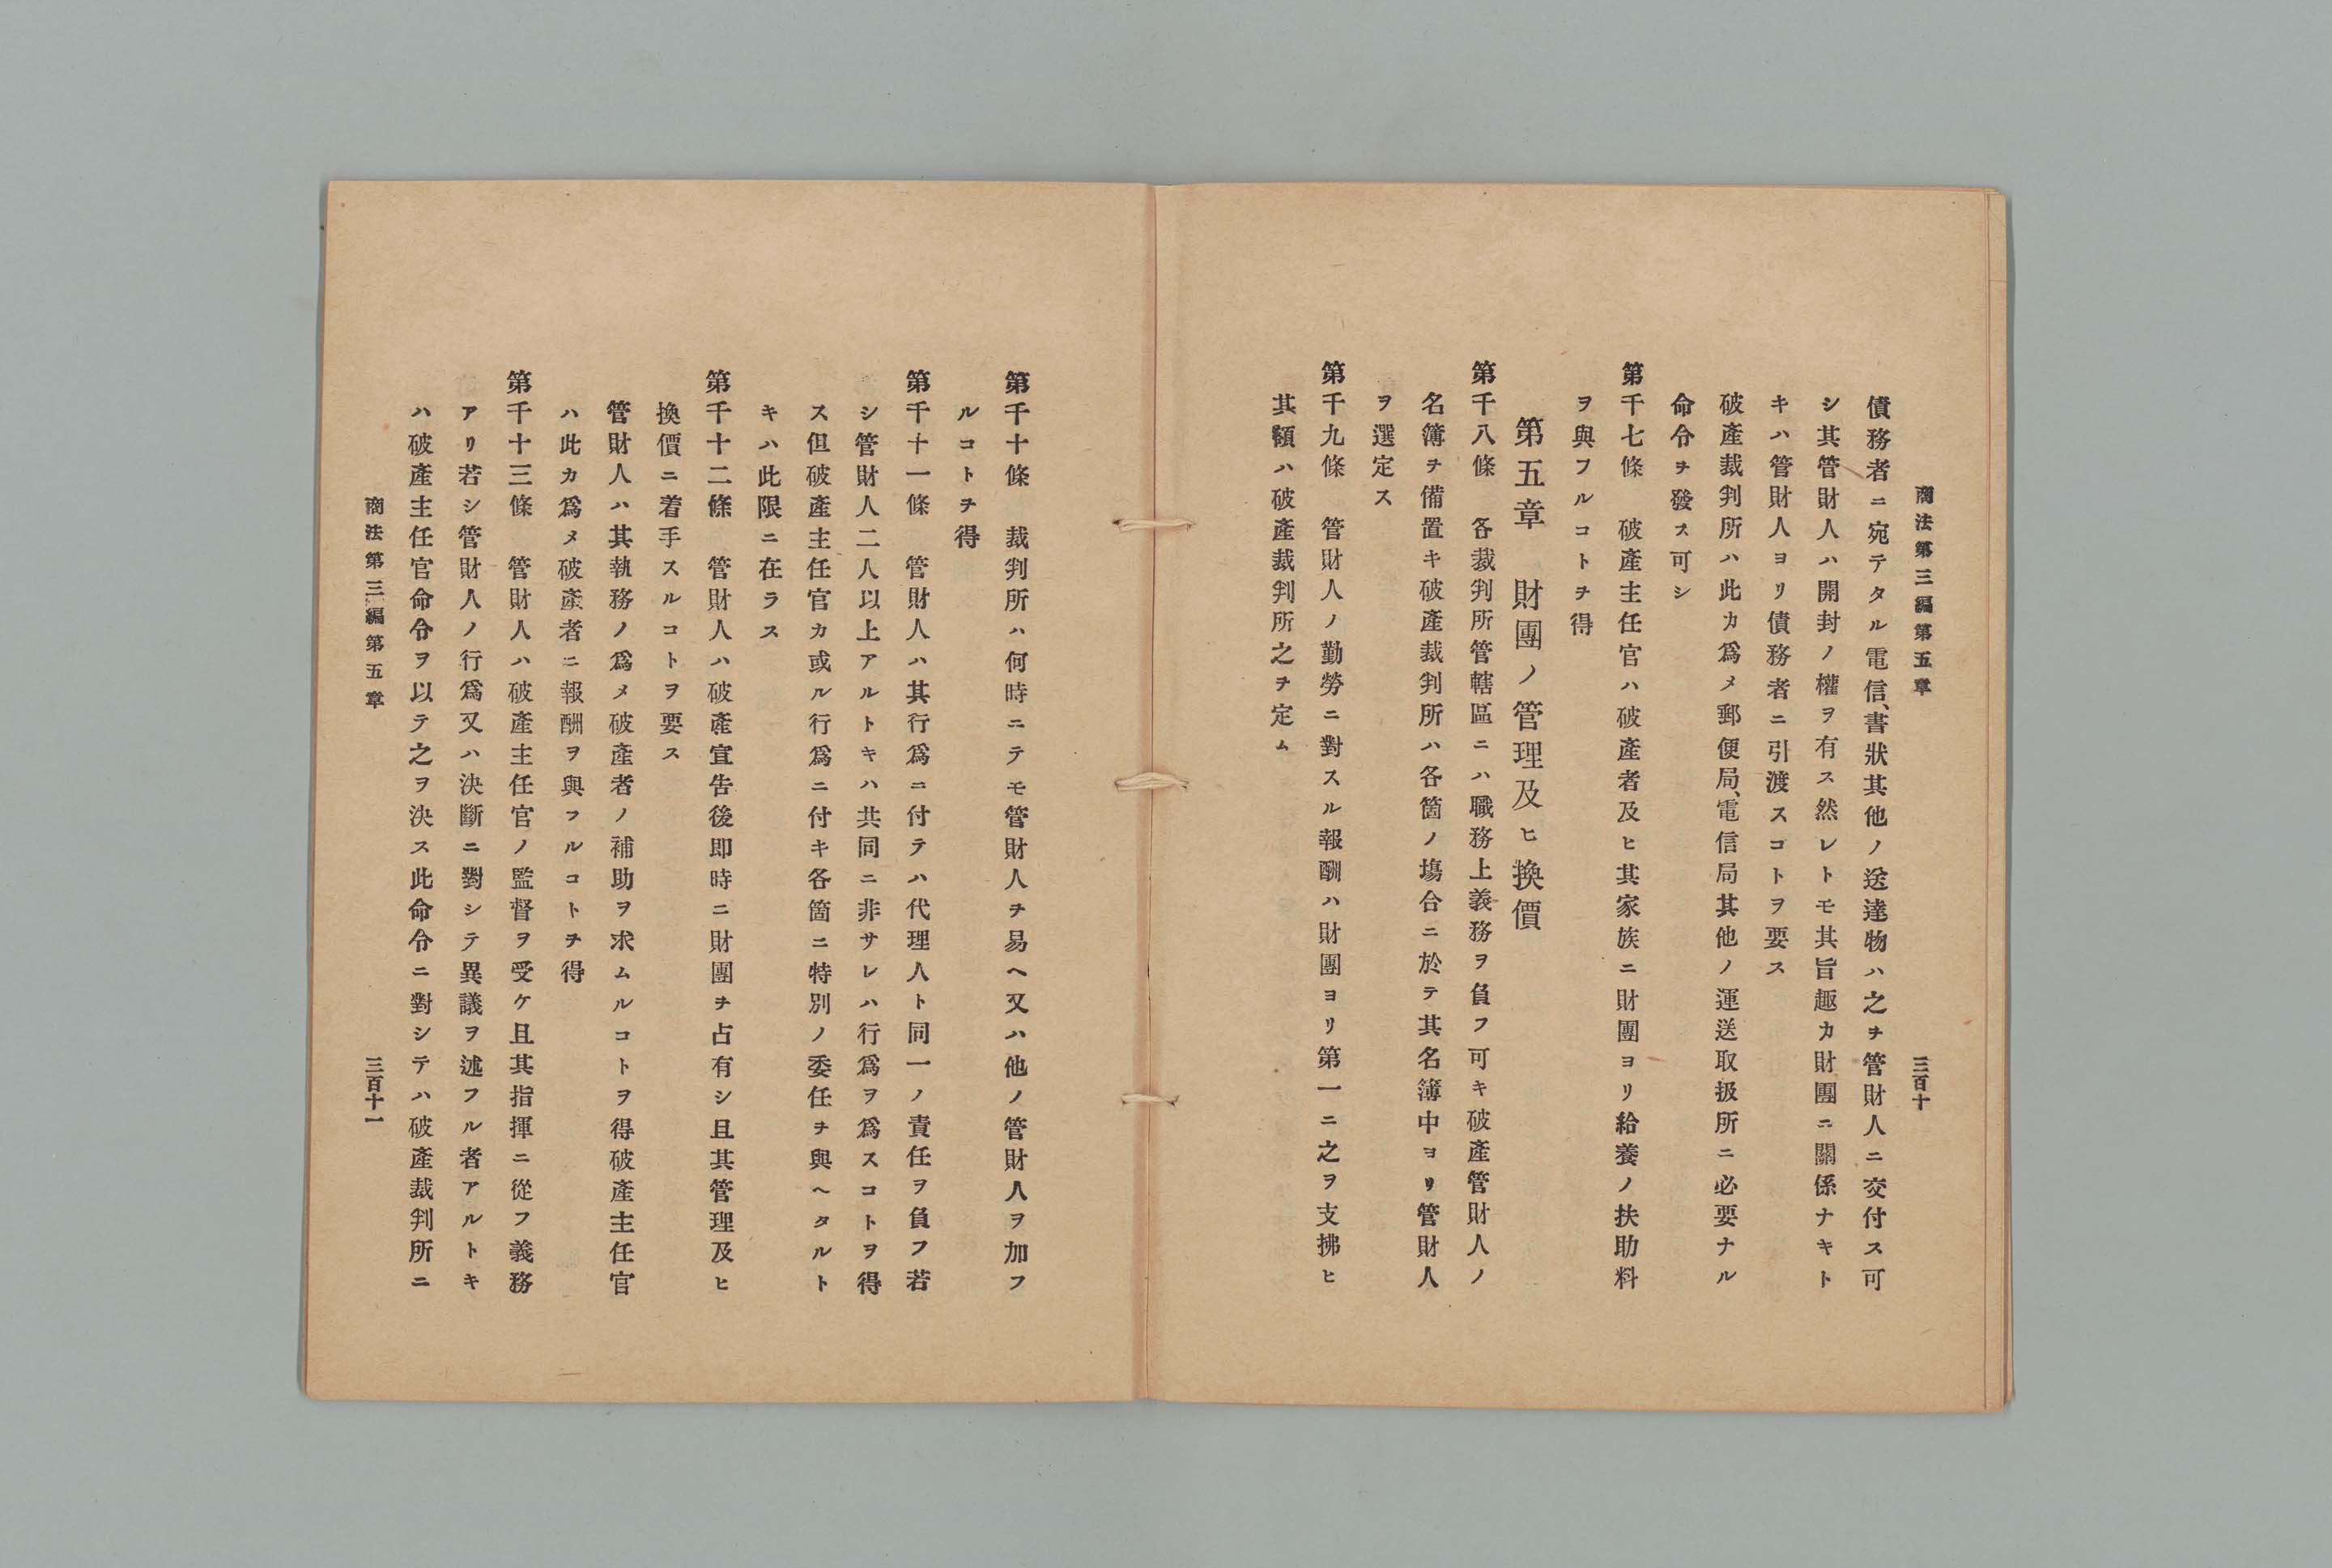 商法第三編第五章
三百十
債務者ニ宛テタル電信、書狀其他ノ送達物ハ之ヲ管財人ニ交付ス可
シ其管財人ハ開封ノ權ヲ有ス然レトモ其旨趣カ財團ニ關係ナキト
キハ管財人ヨリ債務者ニ引渡スコトヲ要ス
破產裁判所ハ此カ爲メ郵便局、電信局其他ノ運送取扱所ニ必要ナル
命令ヲ發ス可シ
第千七條　破產主任官ハ破產者及ヒ其家族ニ財團ヨリ給養ノ扶助料
ヲ與フルコトヲ得
第五章　財團ノ管理及ヒ換價
第千八條　各裁判所管轄區ニハ職務上義務ヲ負フ可キ破產管財人ノ
名簿ヲ備置キ破產裁判所ハ各箇ノ塲合ニ於テ其名簿中ヨリ管財人
ヲ選定ス
第千九條　管財人ノ勤勞ニ對スル報酬ハ財團ヨリ第一ニ之ヲ支拂ヒ
其額ハ破產裁判所之ヲ定ム
第千十條　裁判所ハ何時ニテモ管財人ヲ易ヘ又ハ他ノ管財人ヲ加フ
ルコトヲ得
第千十一條　管財人ハ其行爲ニ付テハ代理人ト同一ノ責任ヲ負フ若
シ管財人二人以上アルトキハ共同ニ非サレハ行爲ヲ爲スコトヲ得
ス但破產主任官カ或ル行爲ニ付キ各箇ニ特別ノ委任ヲ與ヘタルト
キハ此限ニ在ラス
第千十二條　管財人ハ破產宣告後即時ニ財團ヲ占有シ且其管理及ヒ
換價ニ着手スルコトヲ要ス
管財人ハ其執務ノ爲メ破產者ノ補助ヲ求ムルコトヲ得破產主任官
ハ此カ爲メ破產者ニ報酬ヲ與フルコトヲ得
第千十三條　管財人ハ破產主任官ノ監督ヲ受ケ且其指揮ニ從フ義務
アリ若シ管財人ノ行爲又ハ決斷ニ對シテ異議ヲ述フル者アルトキ
ハ破產主任官命令ヲ以テ之ヲ決ス此命令ニ對シテハ破產裁判所ニ
商法第三編第五章
三百十一